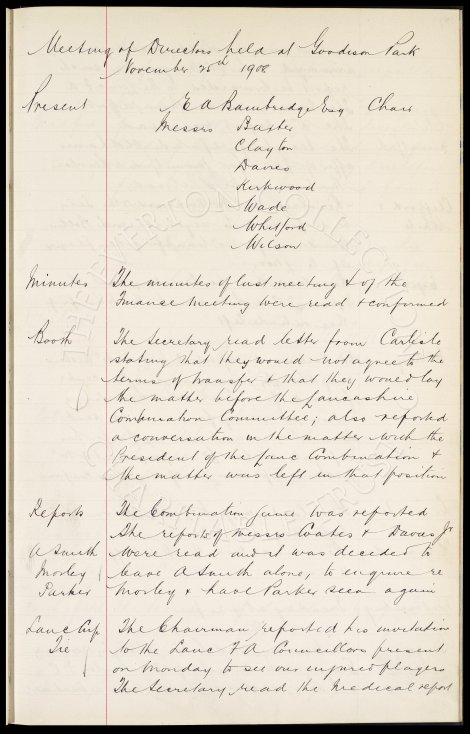 Meeting of Directors held at Goodison Park
November 25th 1908
Present E A Bainbridge Esq Chair
Messrs Baxter
Clayton
Davies
Kirkwood
Wade
Whitford
Wilson
Minutes The minutes of last meeting & of the
Finance Meeting were read & confirmed
Booth The Secretary read letter from Carlisle
stating that they would not agree to the
terms of transfer & that they would lay
the matter before the Lancashire
Combination Committee; also reported
a conversation in the matter with the
President of the Lanc Combination &
the matter was left in that position
Reports The Combination game was reported
The reports of Messrs Coates & Davies Jr
A Smith were read and it was decided to
Morley leave A Smith alone, to enquire re
Parker Morley & have Parker seen again
Lanc Cup The Chairman reported his invitation
Tie to the Lanc F A Councillors present
on Monday to see our injured players
The Secretary read the Medical report
THE EVERTON COLLECTION